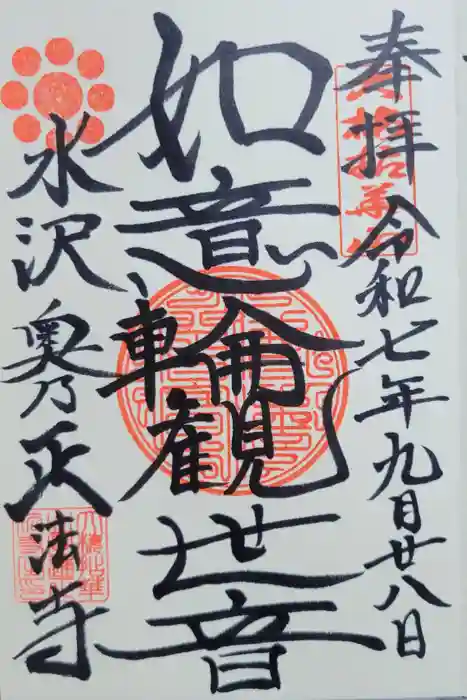 奉拝 令和七年九月廿八日
如意輪観世音
水沢 奥乃正法寺